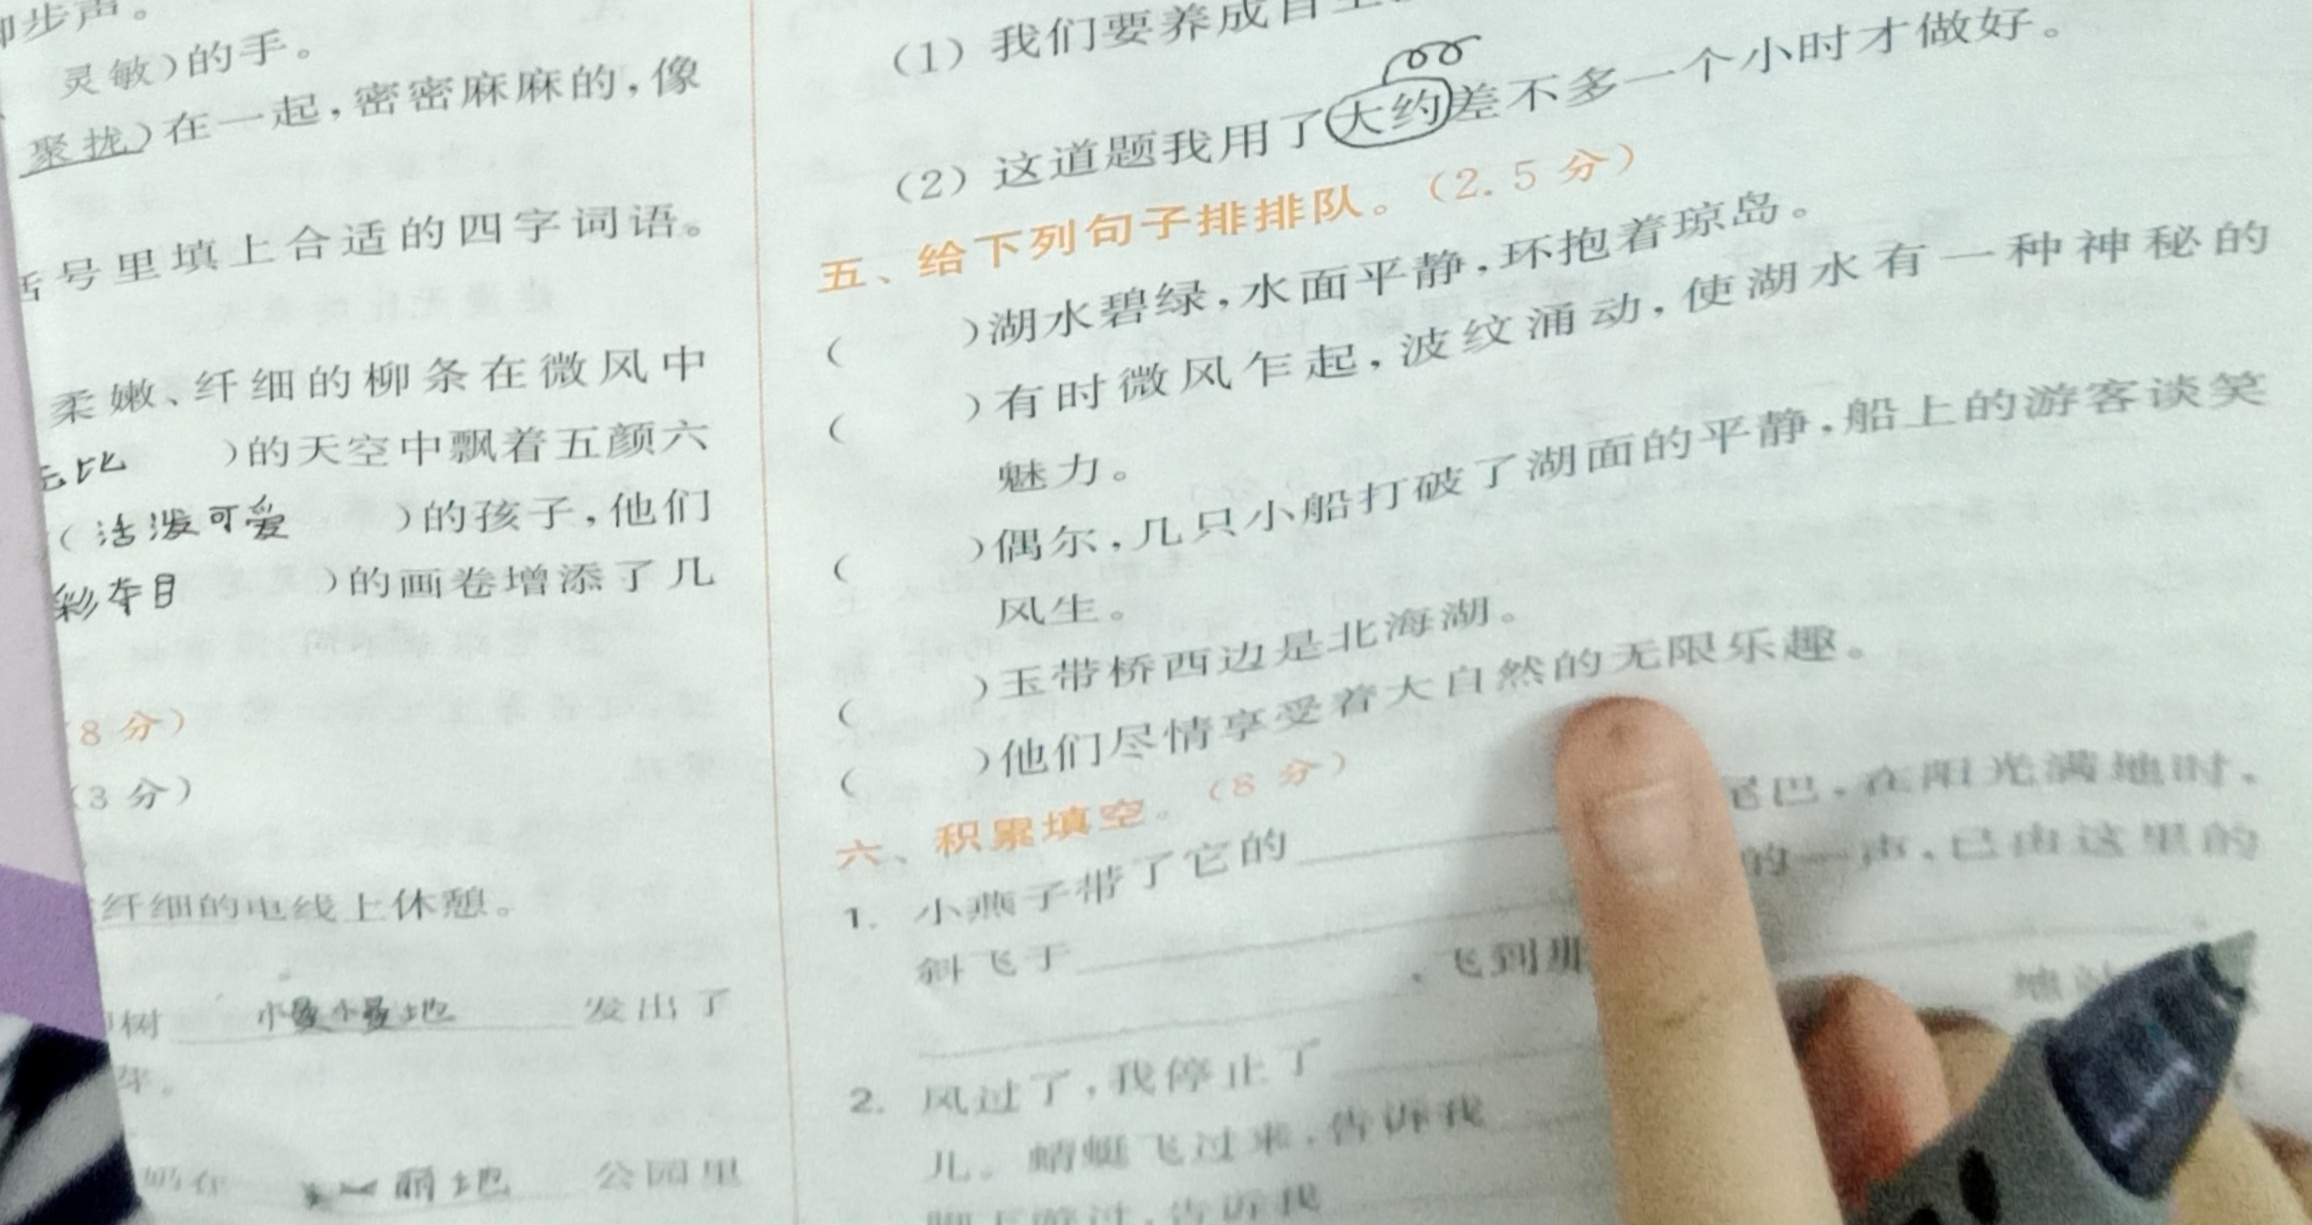 脚步声。
灵敏）的手。
聚拢）在一起，密密麻麻的，像
括号里填上合适的四字词语。
柔嫩、纤细的柳条在微风中
无比）的天空中飘着五颜六
（活泼可爱）的孩子，他们
彩夺目）的画卷增添了几
8分）
（3分）
纤细的电线上休憩。
树 慢慢地 发出了
芽。
公园里
（1）我们要养成自
（2）这道题我用了大约差不多一个小时才做好。
五、给下列句子排排队。（2.5分）
（ ）湖水碧绿，水面平静，环抱着琼岛。
（ ）有时微风乍起，波纹涌动，使湖水有一种神秘的
魅力。
（ ）偶尔，几只小船打破了湖面的平静，船上的游客谈笑
风生。
（ ）玉带桥西边是北海湖。
（ ）他们尽情享受着大自然的无限乐趣。
六、积累填空。（8分）
1. 小燕子带了它的 尾巴，在阳光满地时，
斜飞于 的一声，已由这里的
，飞到那
2. 风过了，我停止了
儿。蜻蜓飞过来，告诉我
告诉我